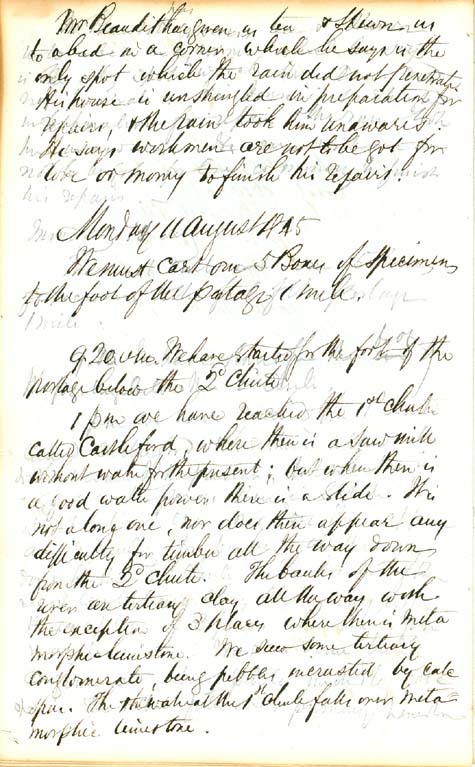 Mr Beaudet has given us tea & shewn us
to a bed in a corner which he says is the
only spot which the rain did not penetrate
His house is unshingled in preparation for
repairs, & the rain took him unawares.
He says workmen are not to be got for
love or money to finish his repairs.
Monday 11 August 1845
We must cart our 5 Boxes of Specimens
to the foot of the portage 1 mile.
9.20 a.m. We have started for the foot of the
portage below the 2d Chute
1 pm we have reached the 1st Chute
called Castleford, where there is a saw mill
without water for the present; but when there is
a good water power there is a slide. It is
not a long one, nor does there appear any
difficulty for timber all the way down
from the 2d Chute. The banks of the
river are tertiary clay all the way with
the exception of 3 places where there is meta
morphic limestone. We saw some tertiary
conglomerate, being pebbles incrusted by calc
spar. The water at the 1st chute falls over meta
morphic limestone.